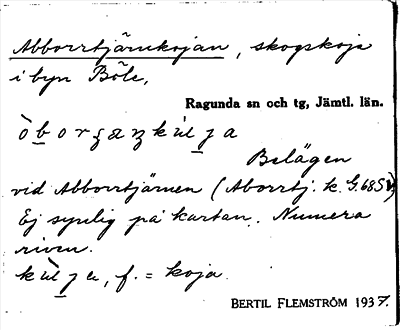 Abborrtjärnkojan, skogskoja
i byn Böle,
Ragunda sn och tg, Jämtl. län.
Belägen
vid Abborrtjärnen (Aborrtj. k. G. 68SV)
Ej synlig på kartan. Numera
riven.
f. = koja.
BERTIL FLEMSTRÖM 1937.